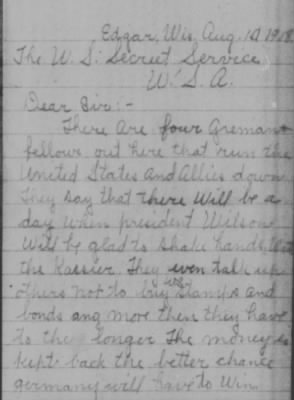 Edgar, Wis, Aug. 10, 1918
The U. S. Secret Service
U. S. A.
Dear Sir:-
There Are four Greman
fellows out here that run the
United States And Allies down
They say that there will be a
day when president Wilson
will be glad to shake hands with
the Kaesier. They even talk up
others not to buy war stamps and
bonds any more then they have
to the longer the money is
kept back the better chance
germany will have to win